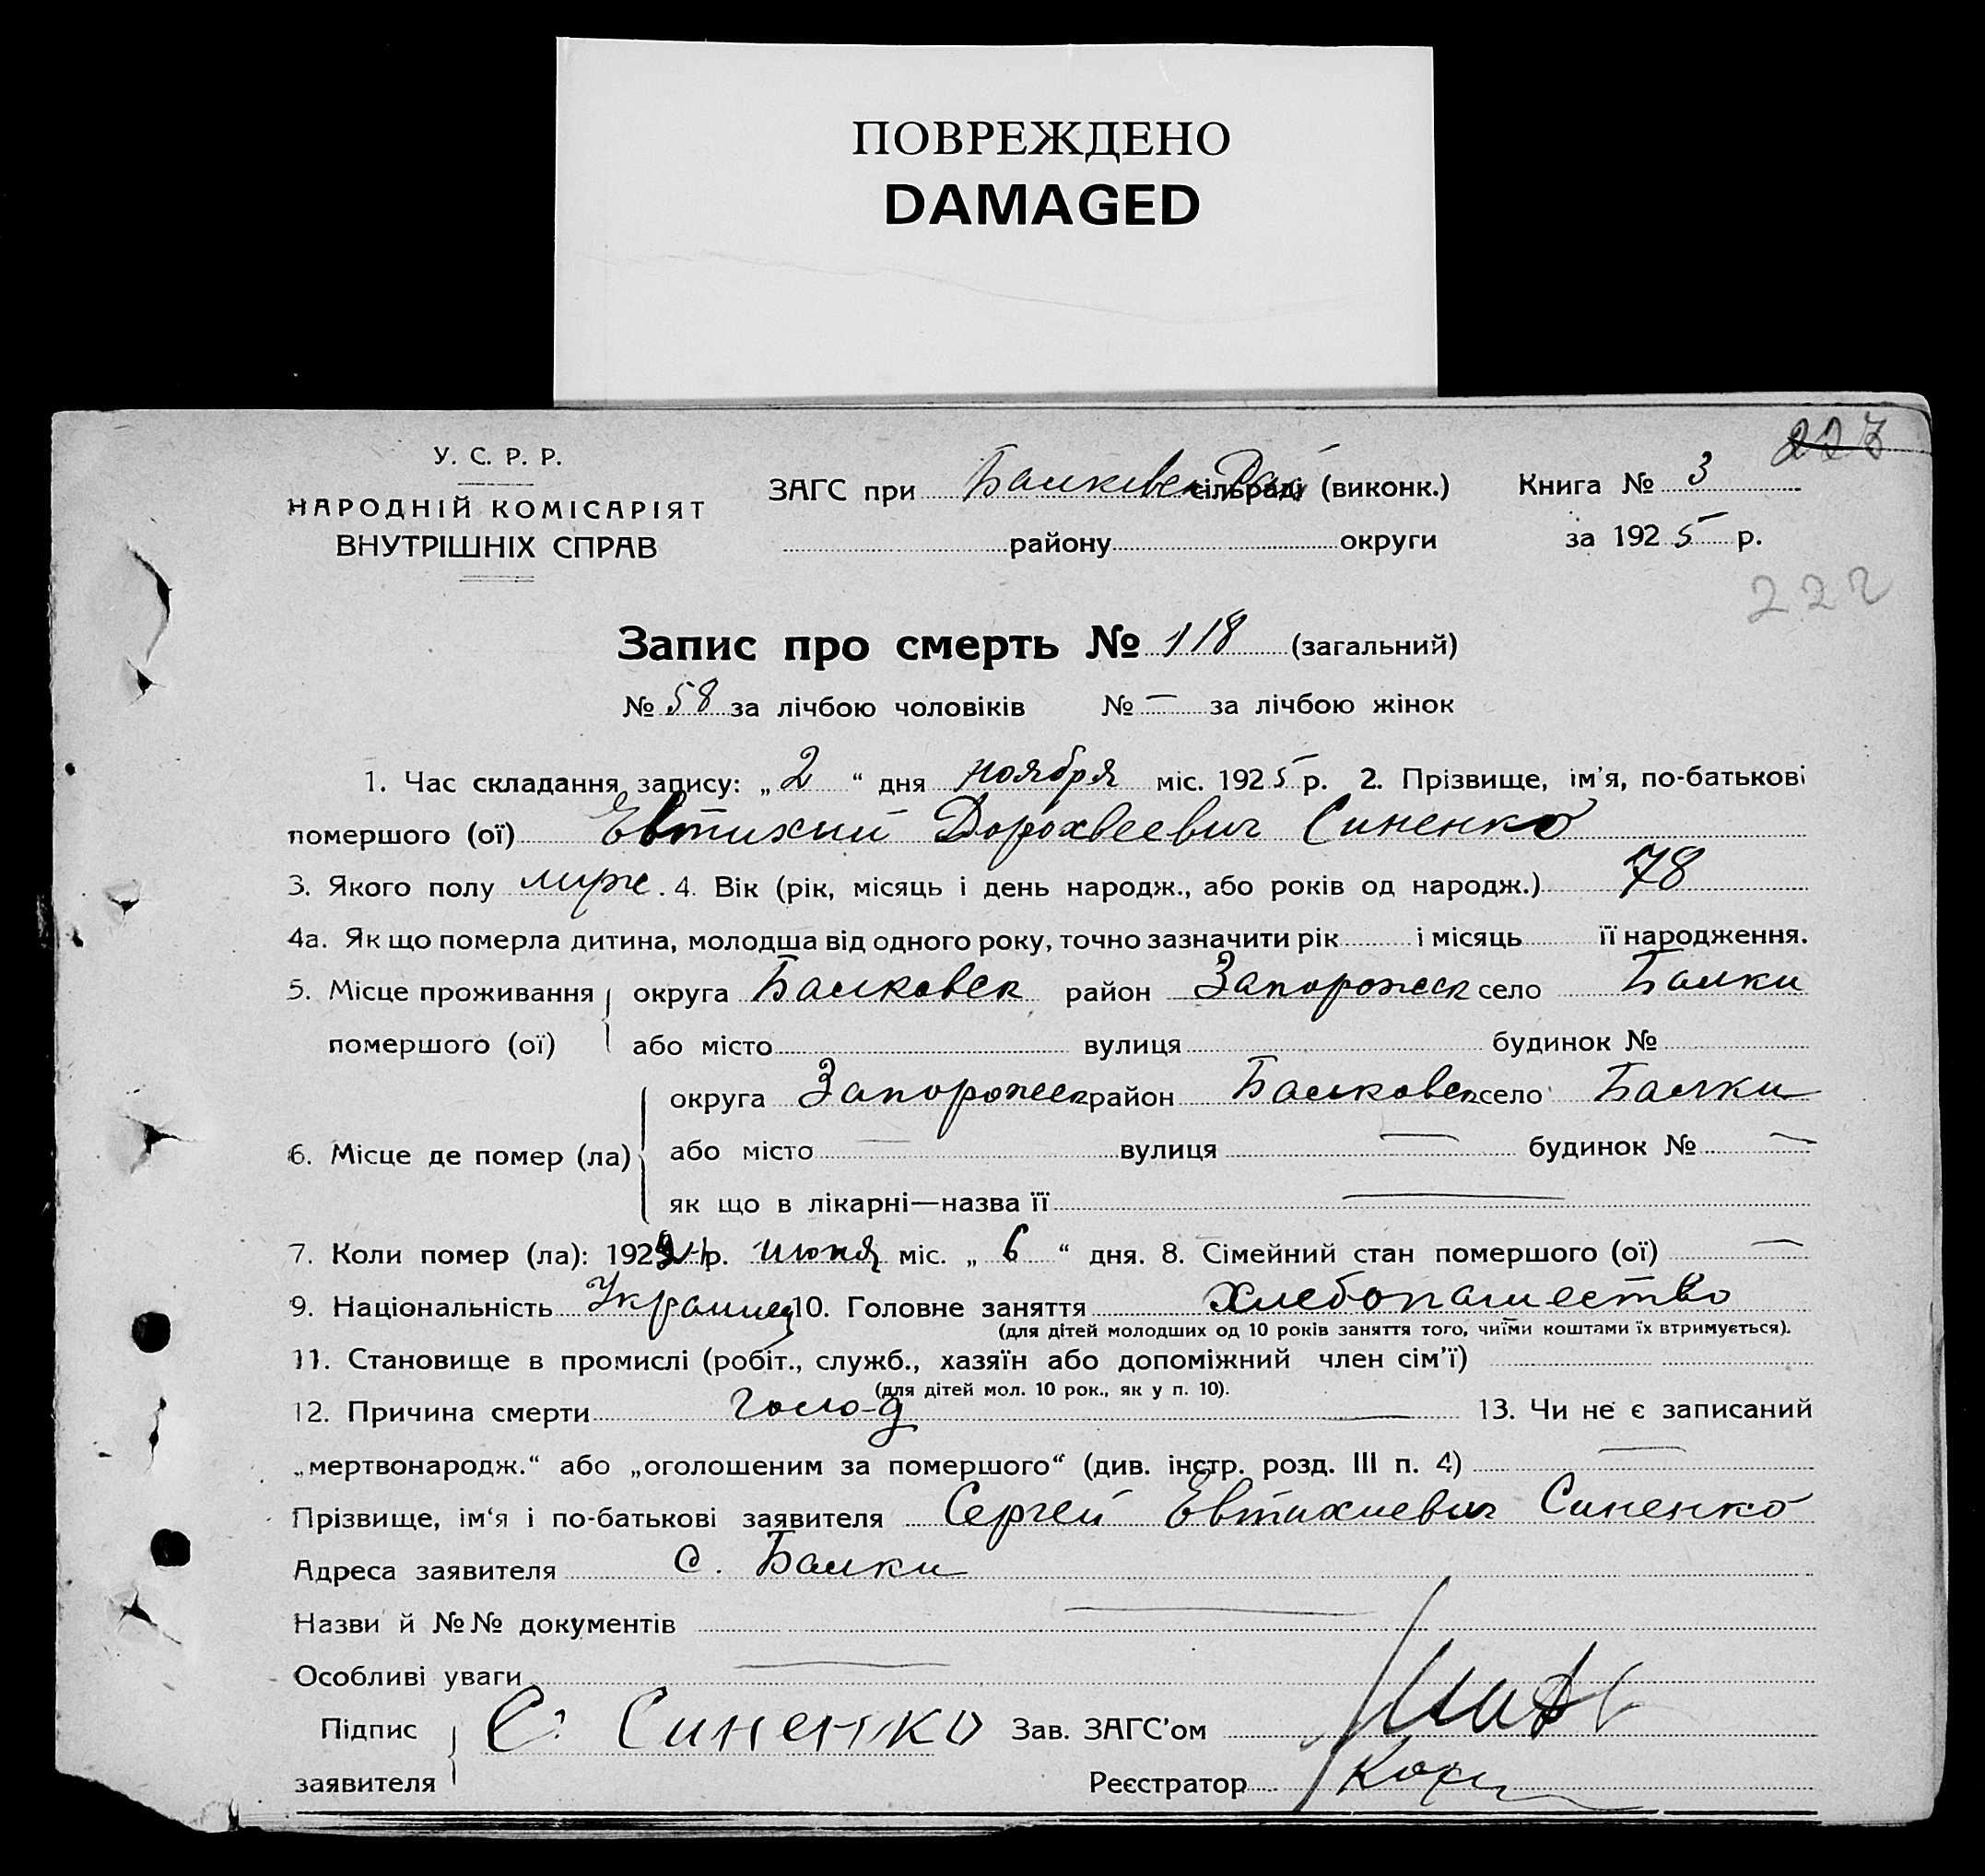 ПОВРЕЖДЕНО
DAMAGED
227
У. С. Р. Р.
НАРОДНІЙ КОМІСАРІЯТ
ВНУТРІШНІХ СПРАВ
ЗАГС при Балковск. Рай сільраді (виконк.) Книга № 3
району округи за 1925 р.
222
Запис про смерть № 118 (загальний)
№ 58 за лічбою чоловіків № — за лічбою жінок
1. Час складання запису: „2“ дня ноября міс. 1925 р. 2. Прізвище, ім'я, по-батькові
помершого (ої) Евтихий Дорохвеевич Синенко
3. Якого полу муж. 4. Вік (рік, місяць і день народж., або років од народж.) 78
4а. Як що померла дитина, молодша від одного року, точно зазначити рік і місяць її народження.
5. Місце проживання округа Балковск район Запорожск село Балки
помершого (ої) або місто вулиця будинок №
округа Запорожск район Балковск село Балки
6. Місце де помер (ла) або місто — вулиця — будинок № —
як що в лікарні—назва її —
7. Коли помер (ла): 192 р. июня міс. „6“ дня. 8. Сімейний стан помершого (ої) —
9. Національність Украинец 10. Головне заняття хлебопашество
(для дітей молодших од 10 років заняття того, чиїми коштами їх втримується).
11. Становище в промислі (робіт., служб., хазяїн або допоміжний член сім'ї)
(для дітей мол. 10 рок., як у п. 10).
12. Причина смерти голод — 13. Чи не є записаний
„мертвонародж.“ або „оголошеним за помершого“ (див. інстр. розд. III п. 4) —
Прізвище, ім'я і по-батькові заявителя Сергей Евтихиевич Синенко
Адреса заявителя с. Балки
Назви й №№ документів —
Особливі уваги —
Підпис С. Синенко Зав. ЗАГС'ом
заявителя Реєстратор